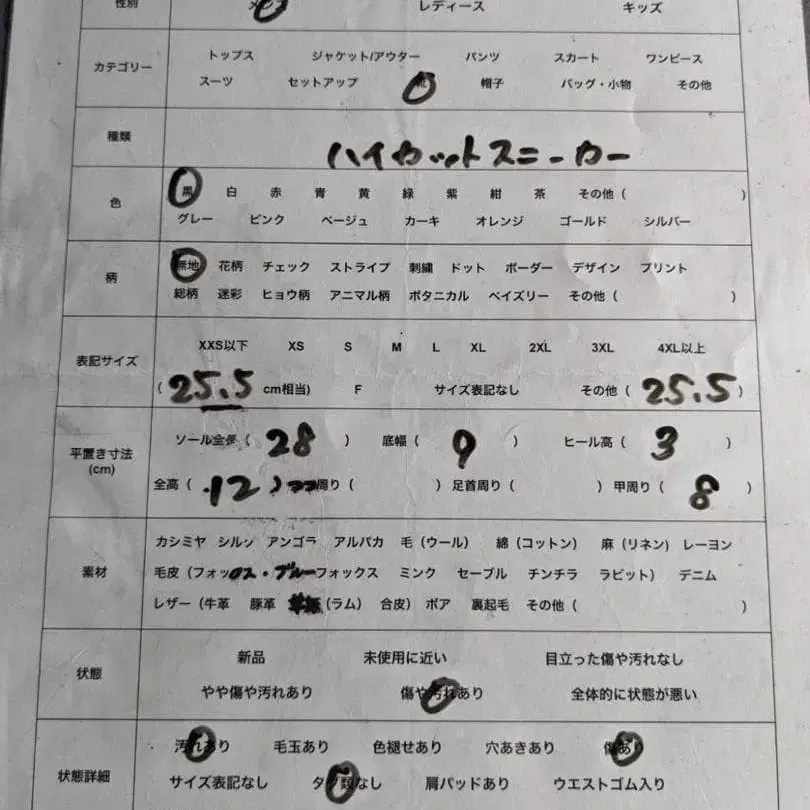 性別 メンズ レディース キッズ
カテゴリー
トップス ジャケット/アウター パンツ スカート ワンピース
スーツ セットアップ 靴 帽子 バッグ・小物 その他
種類 ハイカットスニーカー
色
黒 白 赤 青 黄 緑 紫 紺 茶 その他 ( )
グレー ピンク ベージュ カーキ オレンジ ゴールド シルバー
柄
無地 花柄 チェック ストライプ 刺繍 ドット ボーダー デザイン プリント
総柄 迷彩 ヒョウ柄 アニマル柄 ボタニカル ペイズリー その他 ( )
表記サイズ
XXS以下 XS S M L XL 2XL 3XL 4XL以上
( 25.5 cm相当) F サイズ表記なし その他 ( 25.5 )
平置き寸法
(cm)
ソール全長 ( 28 ) 底幅 ( 9 ) ヒール高 ( 3 )
全高 ( 12 ) 周り ( ) 足首周り ( ) 甲周り ( 8 )
素材
カシミヤ シルク アンゴラ アルパカ 毛 (ウール) 綿 (コットン) 麻 (リネン) レーヨン
毛皮 (フォックス・ブルーフォックス ミンク セーブル チンチラ ラビット) デニム
レザー (牛革 豚革 (ラム) 合皮) ボア 裏起毛 その他 ( )
状態
新品 未使用に近い 目立った傷や汚れなし
やや傷や汚れあり 傷や汚れあり 全体的に状態が悪い
状態詳細
汚れあり 毛玉あり 色褪せあり 穴あきあり 傷あり
サイズ表記なし タグ類なし 肩パッドあり ウエストゴム入り